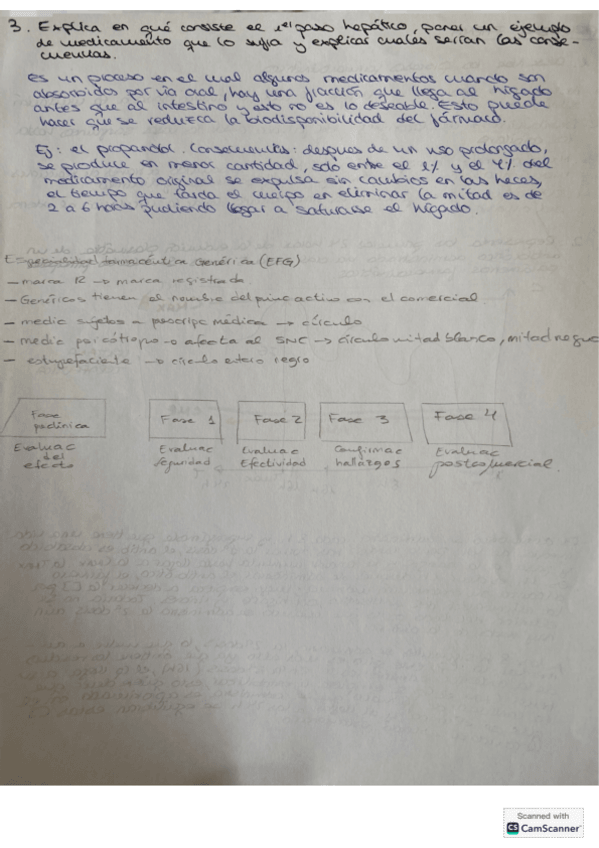 3. Explica en qué consiste el 1er paso hepático, poner un ejemplo
de medicamento que lo sufra y explicar cuales serían las conse-
cuencias.
Es un proceso en el cual algunos medicamentos cuando son
absorbidos por vía oral, hay una fracción que llega al hígado
antes que al intestino y esto no es lo deseable. Esto puede
hacer que se reduzca la biodisponibilidad del fármaco.
Ej: el propanolol. Consecuencias: despues de un uso prolongado,
se produce en menor cantidad, sólo entre el 1% y el 4% del
medicamento original se expulsa sin cambios en las heces,
el tiempo que tarda el cuerpo en eliminar la mitad es de
2 a 6 horas pudiendo llegar a saturarse el hígado.
Especialidad farmacéutica Genérica (EFG)
— marca R → marca registrada
— Genéricos tienen el nombre del princ activo con el comercial
— medic sujetos a prescripc médica → círculo
— medic psicótropo → afecta al SNC → círculo mitad blanco, mitad negro
— estupefaciente → círculo entero negro
Fase preclínica
Fase 1
Fase 2
Fase 3
Fase 4
Evaluac del efecto
Evaluac seguridad
Evaluac Efectividad
Confirmac hallazgos
Evaluac postcomercial.
Scanned with
CS CamScanner